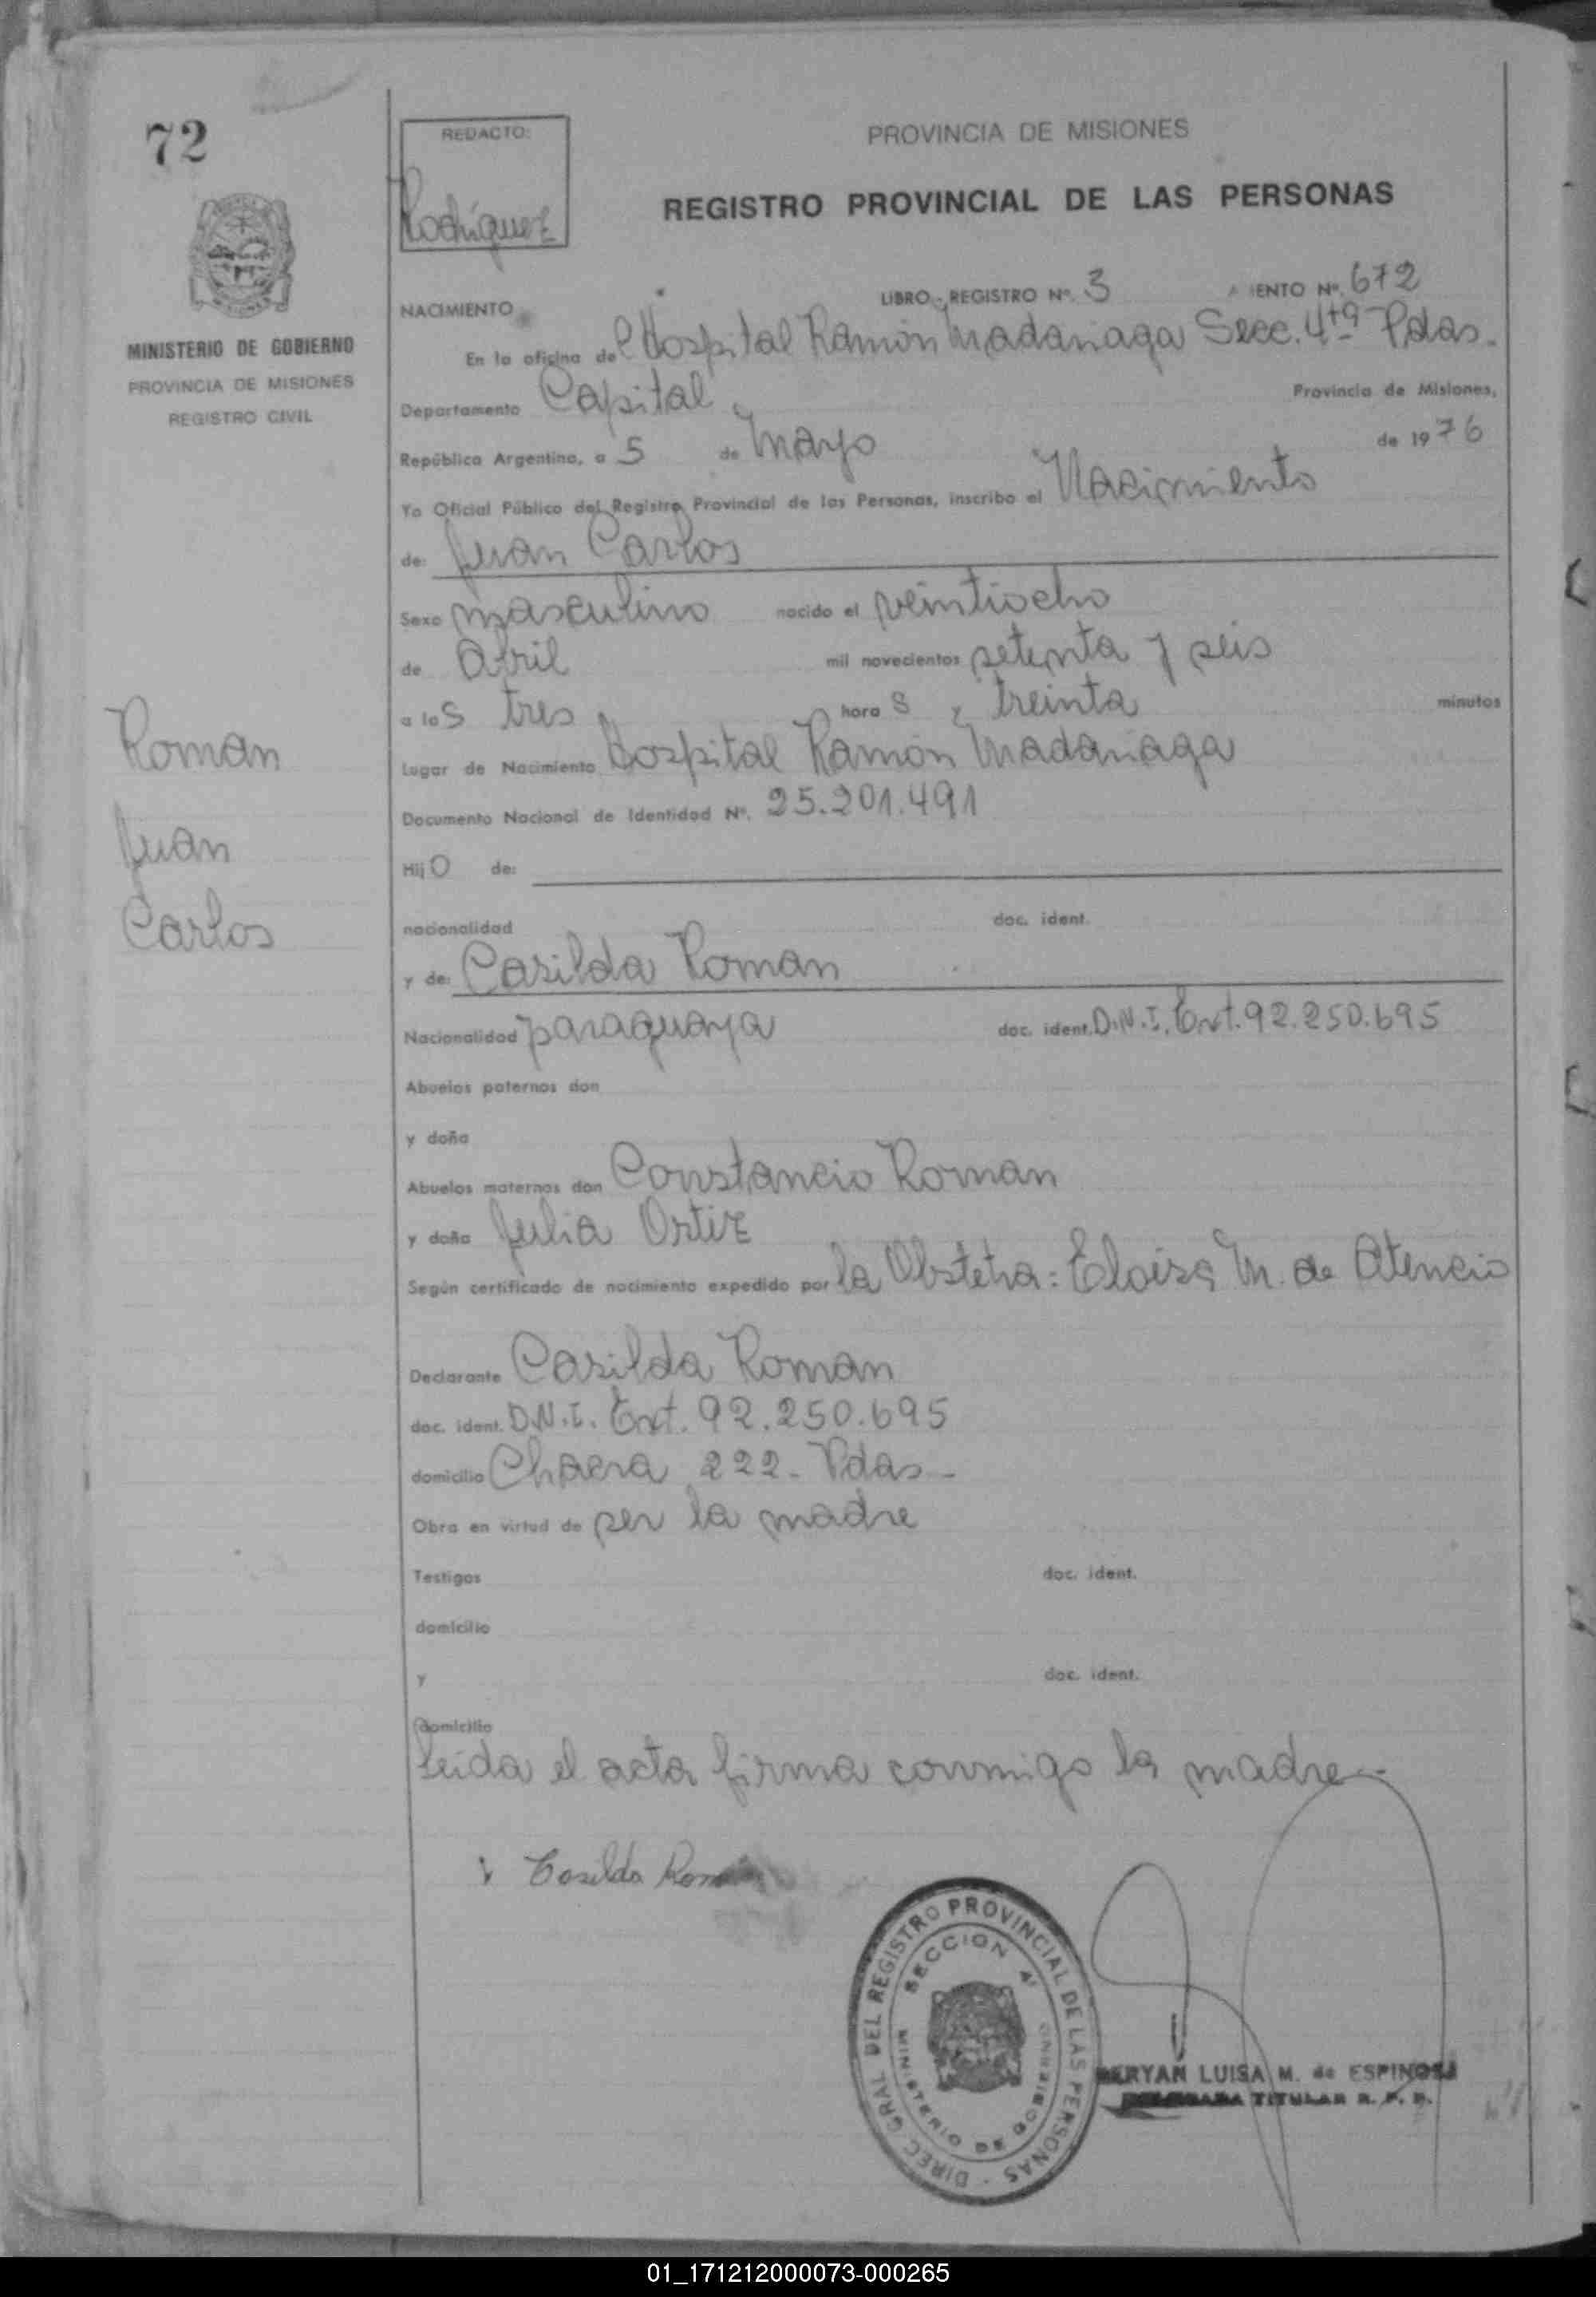 72
REDACTO:
Rodríguez
PROVINCIA DE MISIONES
REGISTRO PROVINCIAL DE LAS PERSONAS
MINISTERIO DE GOBIERNO
PROVINCIA DE MISIONES
REGISTRO CIVIL
NACIMIENTO LIBRO - REGISTRO Nº. 3 IENTO Nº. 672
En la oficina del Hospital Ramón Madariaga Secc. 4ta Pdas.
Departamento Capital Provincia de Misiones,
República Argentina, a 5 de Mayo de 1976
Yo Oficial Público del Registro Provincial de las Personas, inscribo el Nacimiento
de: Juan Carlos
Sexo masculino nacido el veintiocho
de Abril mil novecientos setenta y seis
a las tres horas y treinta minutos
Lugar de Nacimiento Hospital Ramón Madariaga
Documento Nacional de Identidad Nº. 25.201.491
Hijo de:
nacionalidad doc. ident.
y de: Casilda Roman
Nacionalidad paraguaya doc. ident. D.N.I. Ext. 92.250.695
Abuelos paternos don
y doña
Abuelos maternos don Constancio Roman
y doña Julia Ortiz
Según certificado de nacimiento expedido por la Obstetra: Eloisa M. de Atencio
Declarante Casilda Roman
doc. ident. D.N.I. Ext. 92.250.695
domicilio Chacra 222 - Pdas -
Obra en virtud de ser la madre
Testigos doc. ident.
domicilio
y doc. ident.
domicilio
Leida el acta firma conmigo la madre.-
Roman
Juan
Carlos
Casilda Roman
DIREC. GRAL. DEL REGISTRO PROVINCIAL DE LAS PERSONAS
SECCION 4ª
MINISTERIO DE GOBIERNO
LUISA M. de ESPINOSA
TITULAR R. P. P.
01_171212000073-000265